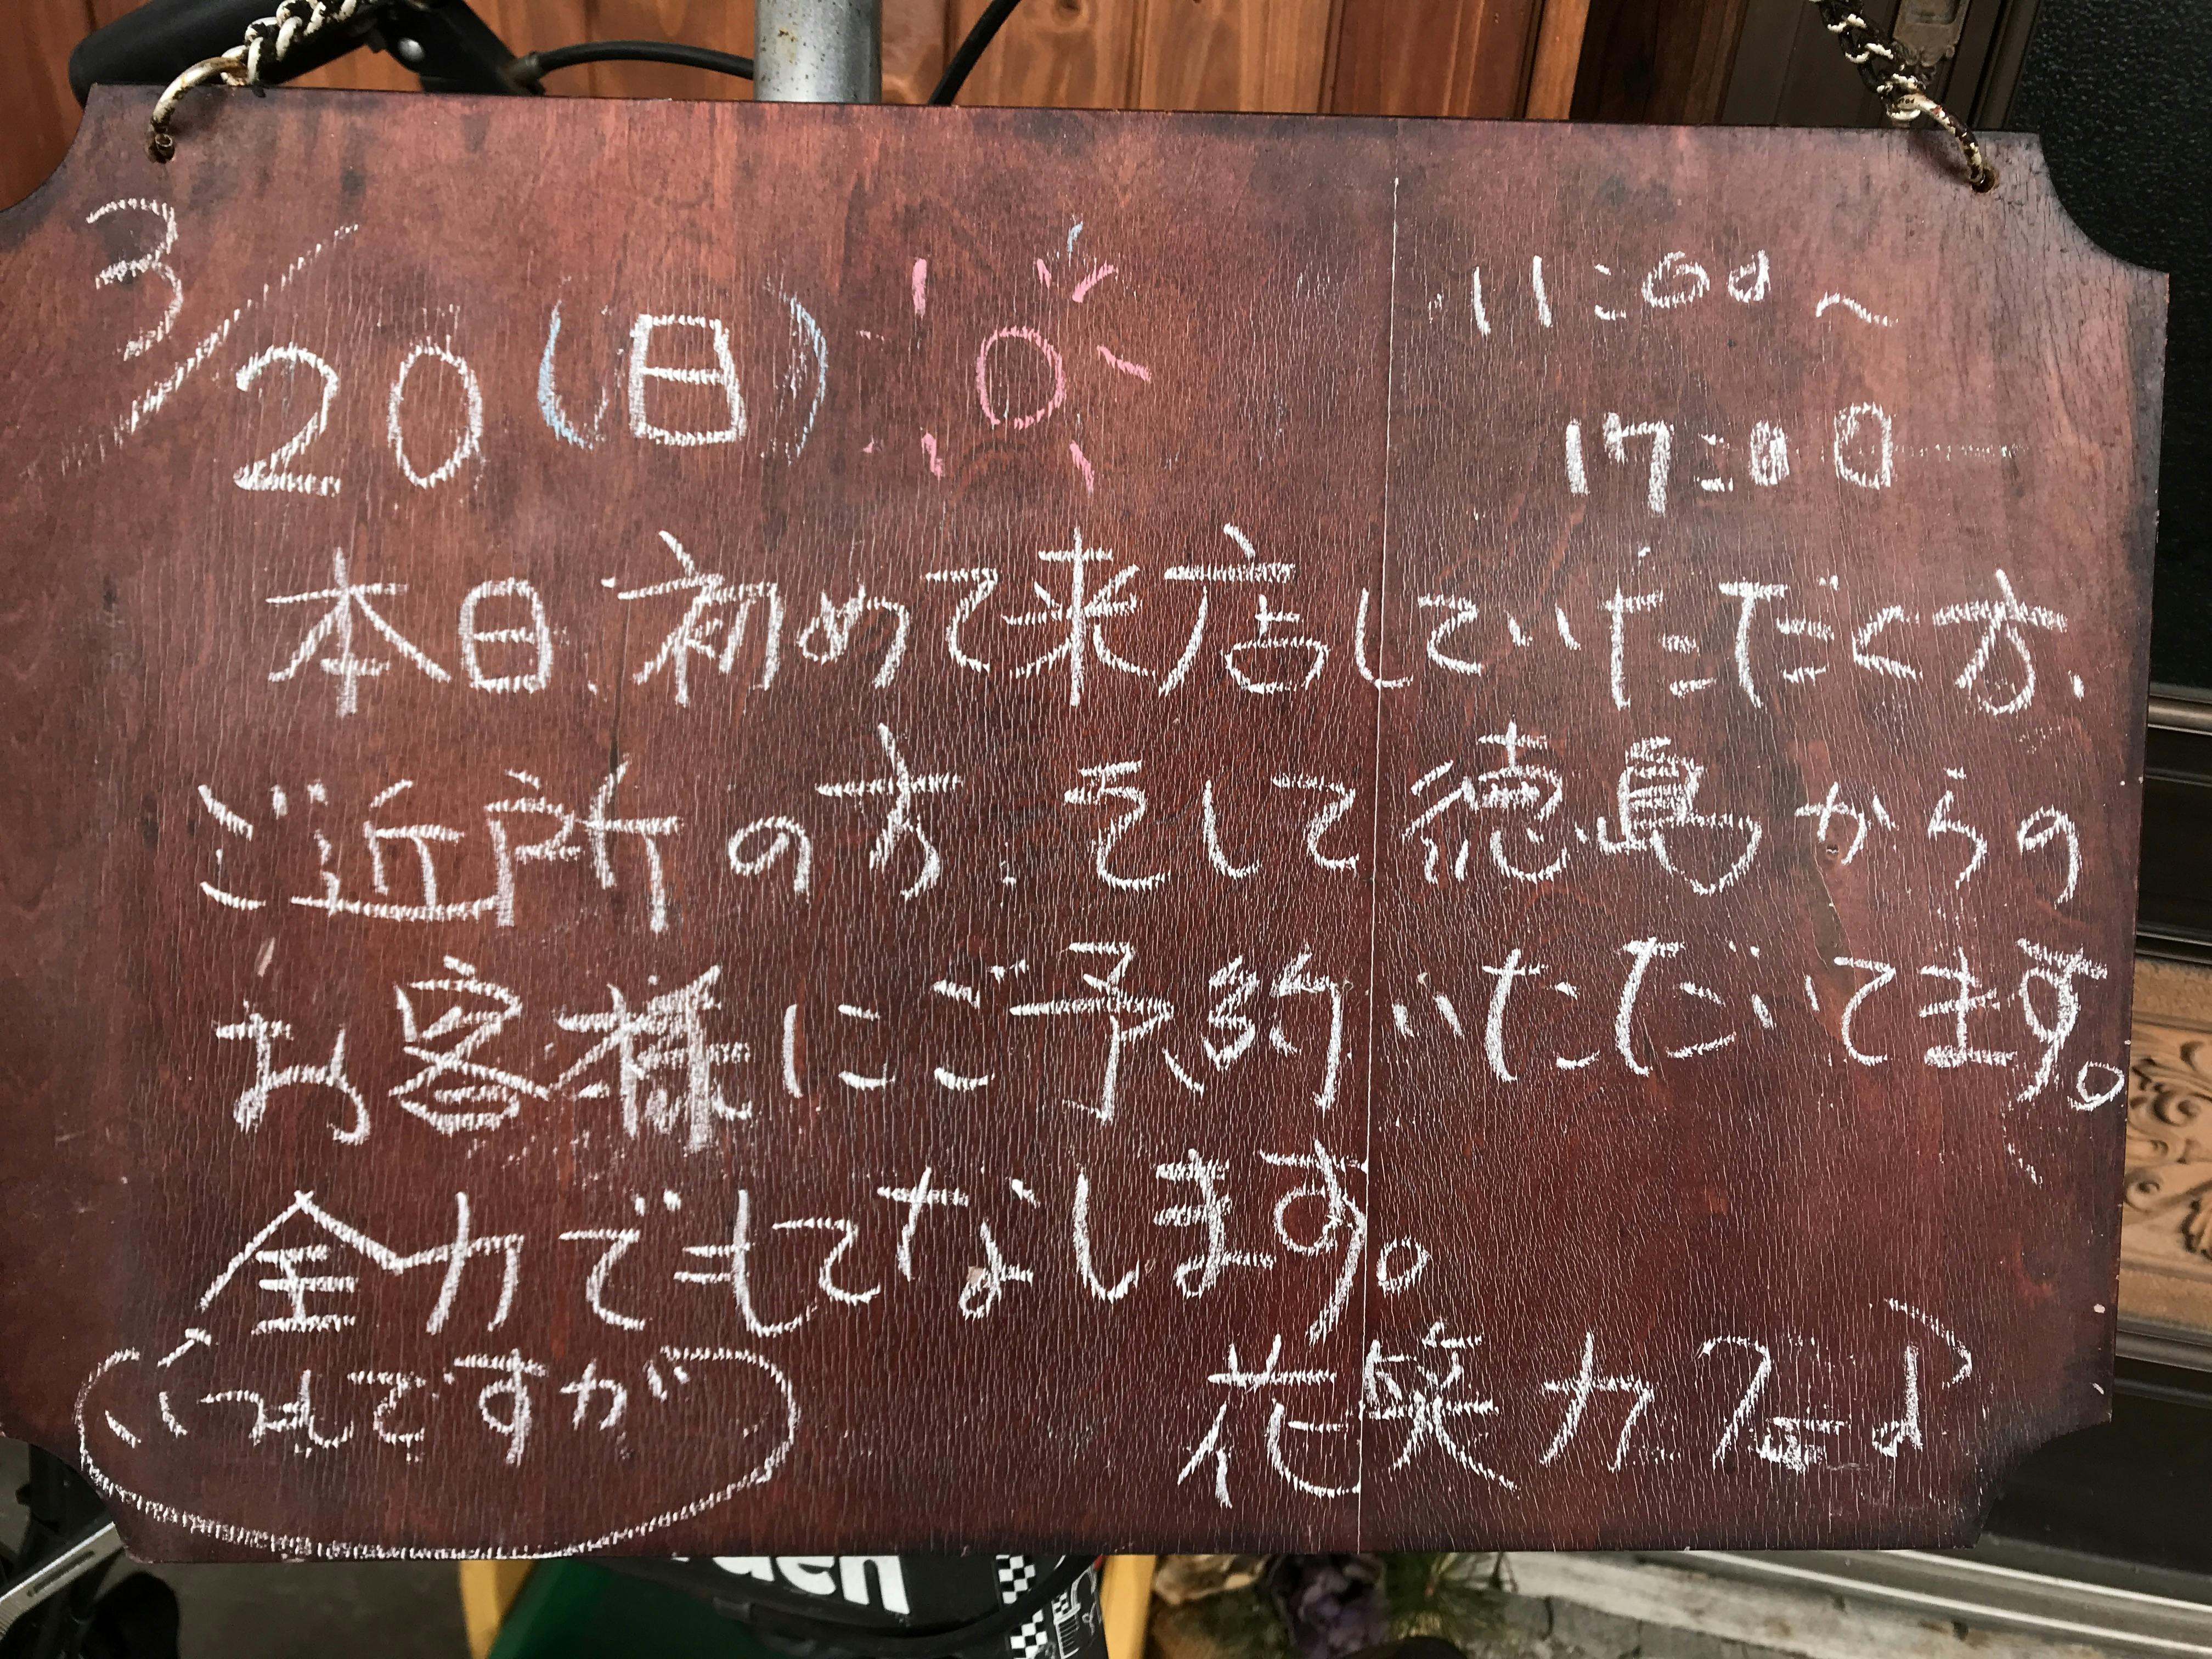 3/20(日)
11:00~
17:00
本日、初めて来店していただく方、
ご近所の方、そして徳島からの
お客様にご予約いただいてます。
全力でもてなします。
いつもですが
花笑カフェ♪